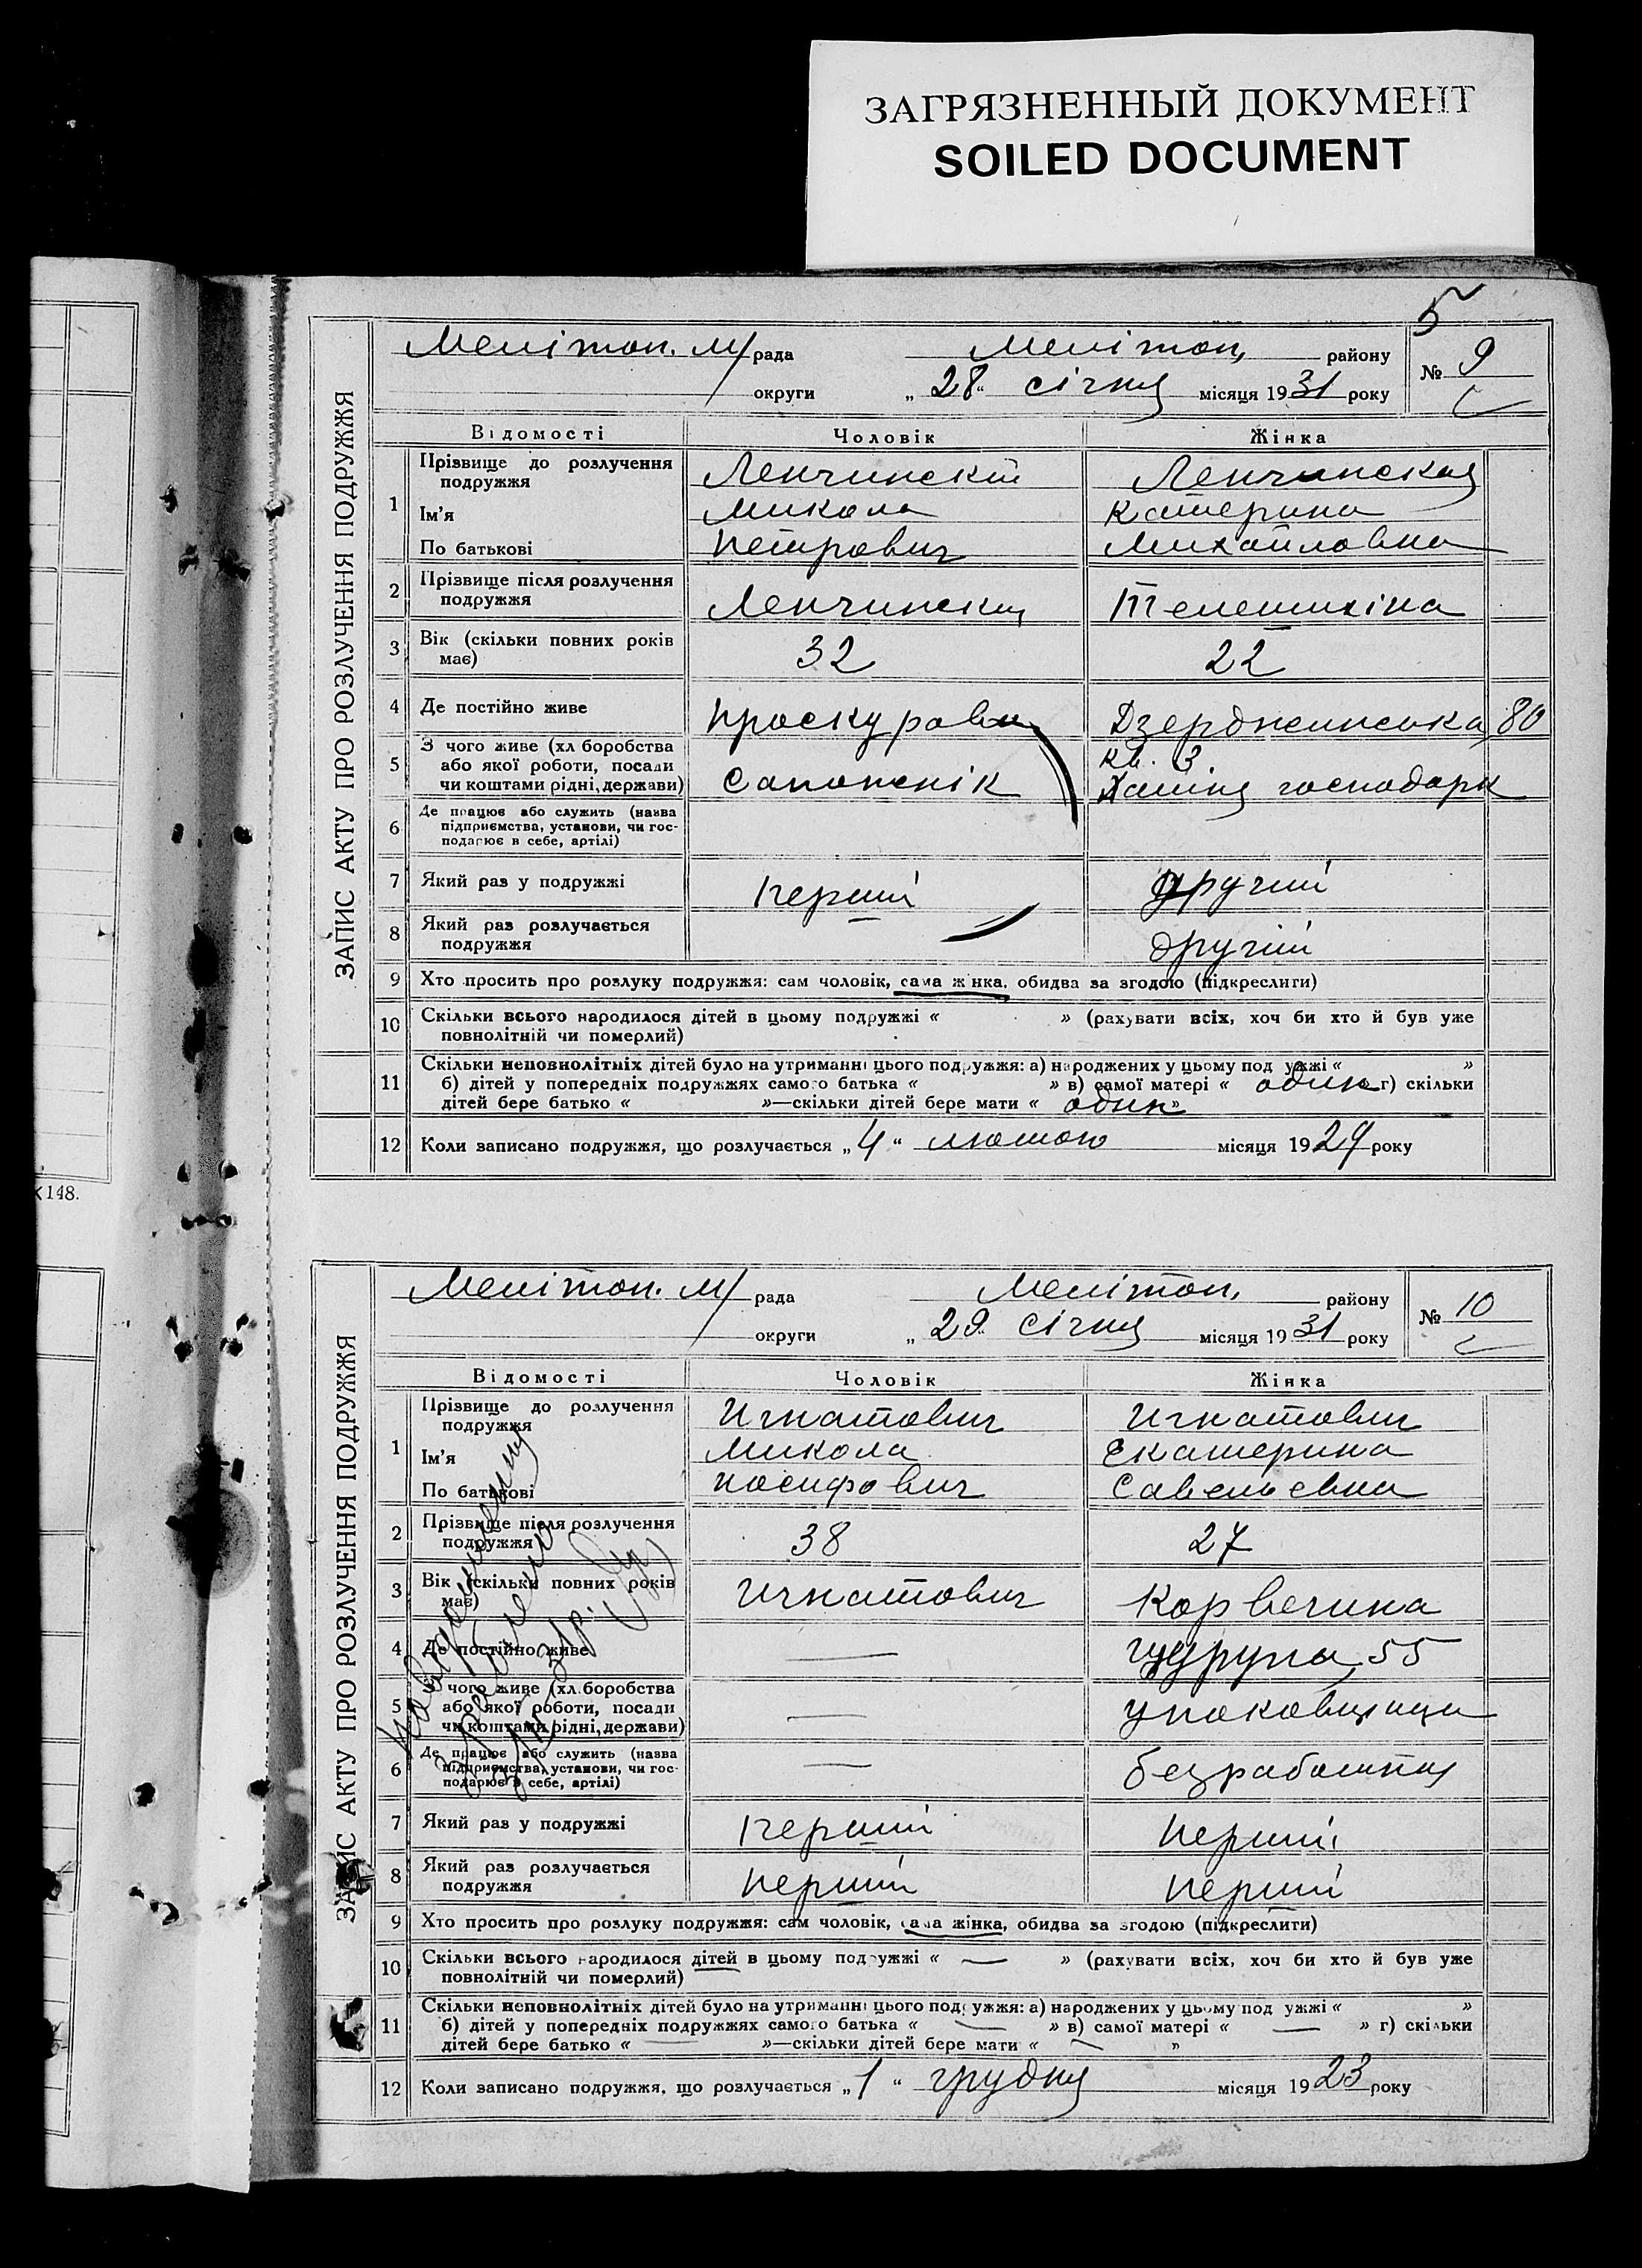 ЗАГРЯЗНЕННЫЙ ДОКУМЕНТ
SOILED DOCUMENT
5
ЗАПИС АКТУ ПРО РОЗЛУЧЕННЯ ПОДРУЖЖЯ
Мелітоп. м/рада Мелітоп. району № 9
округи „28“ січня місяця 1931 року
Відомості Чоловік Жінка
1 Прізвище до розлучення подружжя Ленчинский Ленчинская
Ім'я Микола Катерина
По батькові Петрович Михайловна
2 Прізвище після розлучення
подружжя Ленчинский
3 Вік (скільки повних років
має) 32 22
4 Де постійно живе Дзержинська 80
кв. 3
5 З чого живе (хліборобства
або якої роботи, посади
чи коштами рідні, держави) Сапожнік Хатня господарк
6 Де працює або служить (назва
підприємства, установи, чи гос-
подарює в себе, артілі)
7 Який раз у подружжі перший другий
8 Який раз розлучається
подружжя другий
9 Хто просить про розлуку подружжя: сам чоловік, сама жінка, обидва за згодою (підкреслити)
10 Скільки всього народилося дітей в цьому подружжі « » (рахувати всіх, хоч би хто й був уже
повнолітній чи померлий)
11 Скільки неповнолітніх дітей було на утриманні цього подружжя: а) народжених у цьому подружжі « »
б) дітей у попередніх подружжях самого батька « » в) самої матері « один » г) скільки
дітей бере батько « »—скільки дітей бере мати « один »
12 Коли записано подружжя, що розлучається „4“ лютого місяця 1929 року
К 148.
ЗАПИС АКТУ ПРО РОЗЛУЧЕННЯ ПОДРУЖЖЯ
Мелітоп. м/рада Мелітоп. району № 10
округи „29“ січня місяця 1931 року
Відомості Чоловік Жінка
1 Прізвище до розлучення
подружжя Игнатович Игнатович
Ім'я Микола Екатерина
По батькові Иосифович Савельевна
2 Прізвище після розлучення
подружжя 38 27
3 Вік (скільки повних років
має) Игнатович Корвегина
4 Де постійно живе — 55
5 З чого живе (хліборобства
або якої роботи, посади
чи коштами рідні, держави) — упаковщица
6 Де працює або служить (назва
підприємства, установи, чи гос-
подарює в себе, артілі) — безработная
7 Який раз у подружжі перший перший
8 Який раз розлучається
подружжя перший перший
9 Хто просить про розлуку подружжя: сам чоловік, сама жінка, обидва за згодою (підкреслити)
10 Скільки всього народилося дітей в цьому подружжі « — » (рахувати всіх, хоч би хто й був уже
повнолітній чи померлий)
11 Скільки неповнолітніх дітей було на утриманні цього подружжя: а) народжених у цьому подружжі « »
б) дітей у попередніх подружжях самого батька « — » в) самої матері « — » г) скільки
дітей бере батько « — »—скільки дітей бере мати « — »
12 Коли записано подружжя, що розлучається „1“ грудня місяця 1923 року